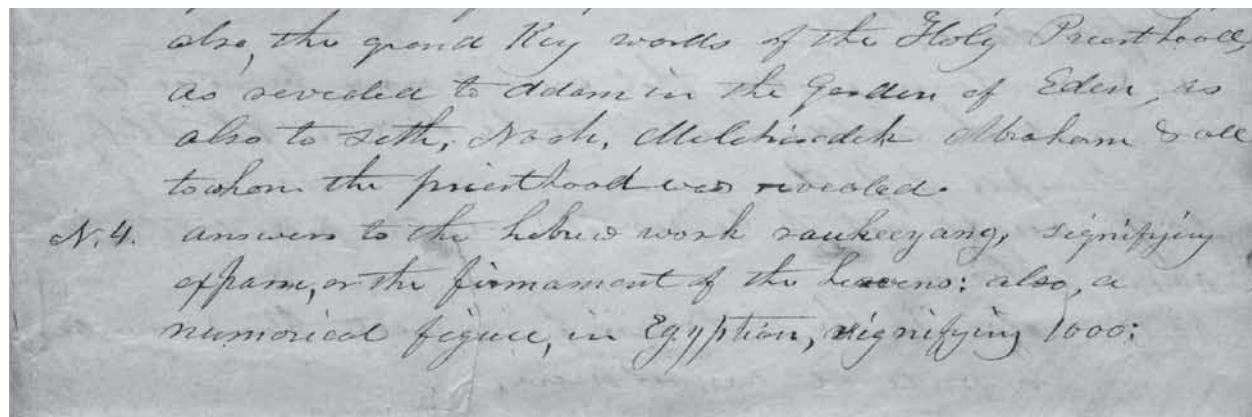 also, the grand Key words of the Holy Priesthood,
as revealed to Adam in the Garden of Eden, as
also to Seth, Noah, Melchisedek Abraham & all
to whom the priesthood was revealed.
N. 4. answers to the hebrew work raukeeyang, signifying
expans, or the firmament of the heavens; also, a
numerical figure, in Egyptian, signifying 1000: